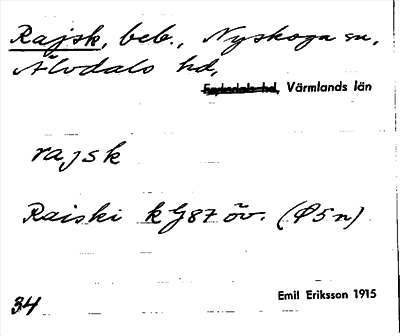 Rajsk, beb., Nyskoga sn,
Älvdals hd,
Fryksdals hd, Värmlands län
rajsk
Raiski kG87 öv. (Ø5n)
Emil Eriksson 1915
34